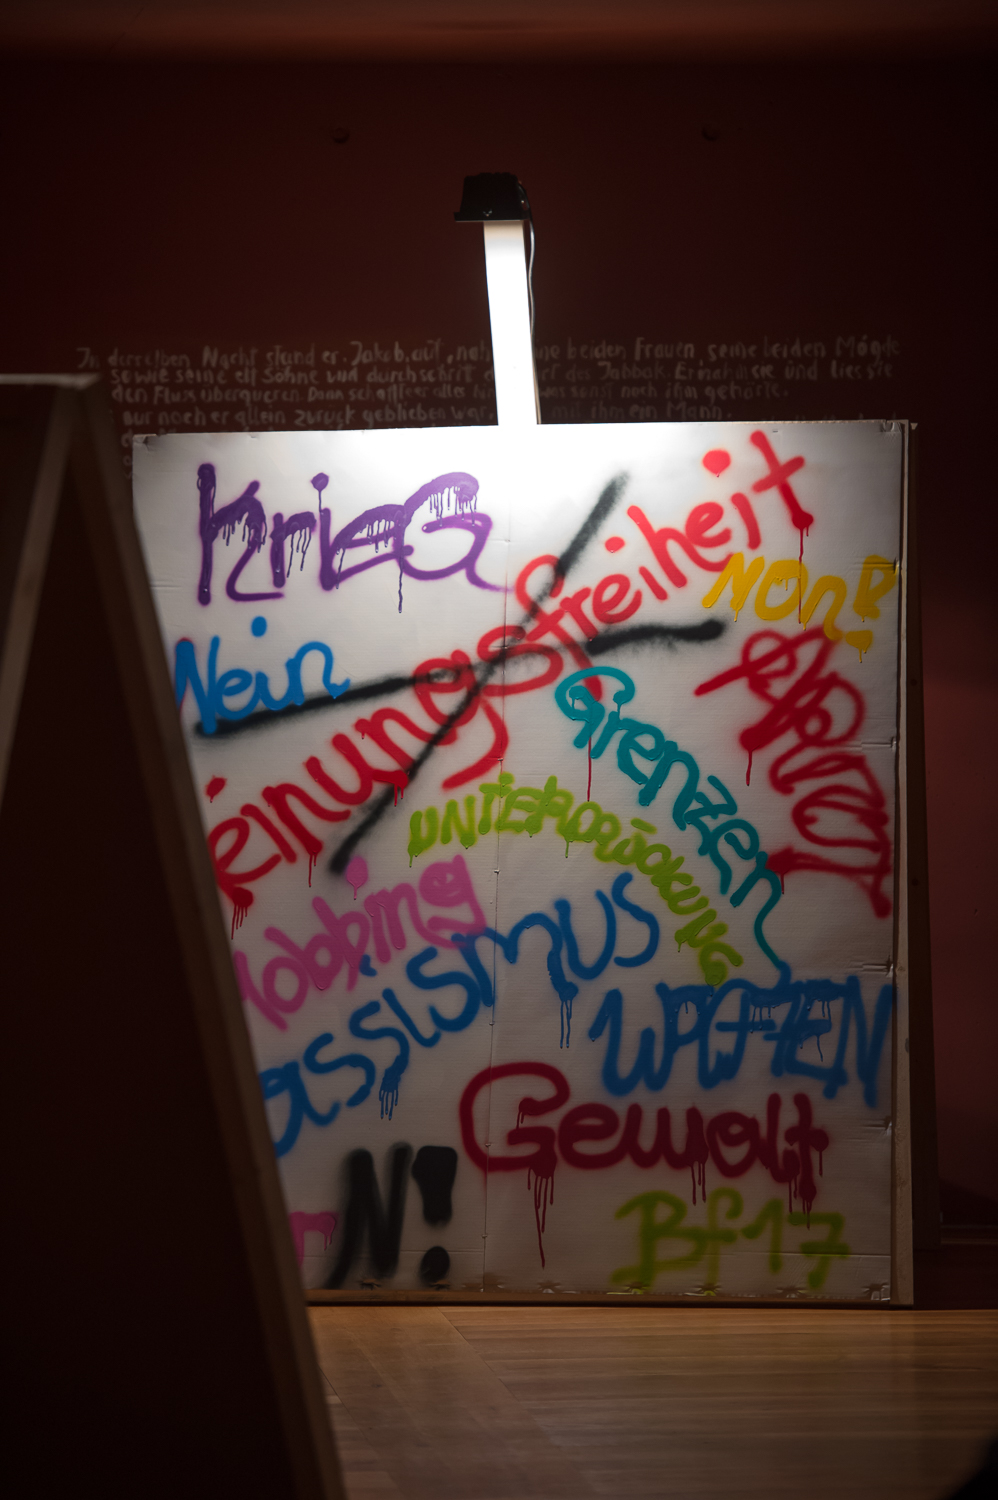 In derselben Nacht stand er, Jakob, auf, beiden Frauen, seine beiden Mägde
sowie seine elf Söhne und durchschritt des Jabbok. Er nahm sie und liess sie
den Fluss überqueren. Dann schaffte er alles was sonst noch ihm gehörte.
nur noch er allein zurück geblieben war, mit ihm ein Mann.
KrieG
einungsfreiheit
Non!
Nein
Grenzen
UNTERDRÜCKUNG
obbing
assismus
WAFFEN
Gewalt
N!
Bf17